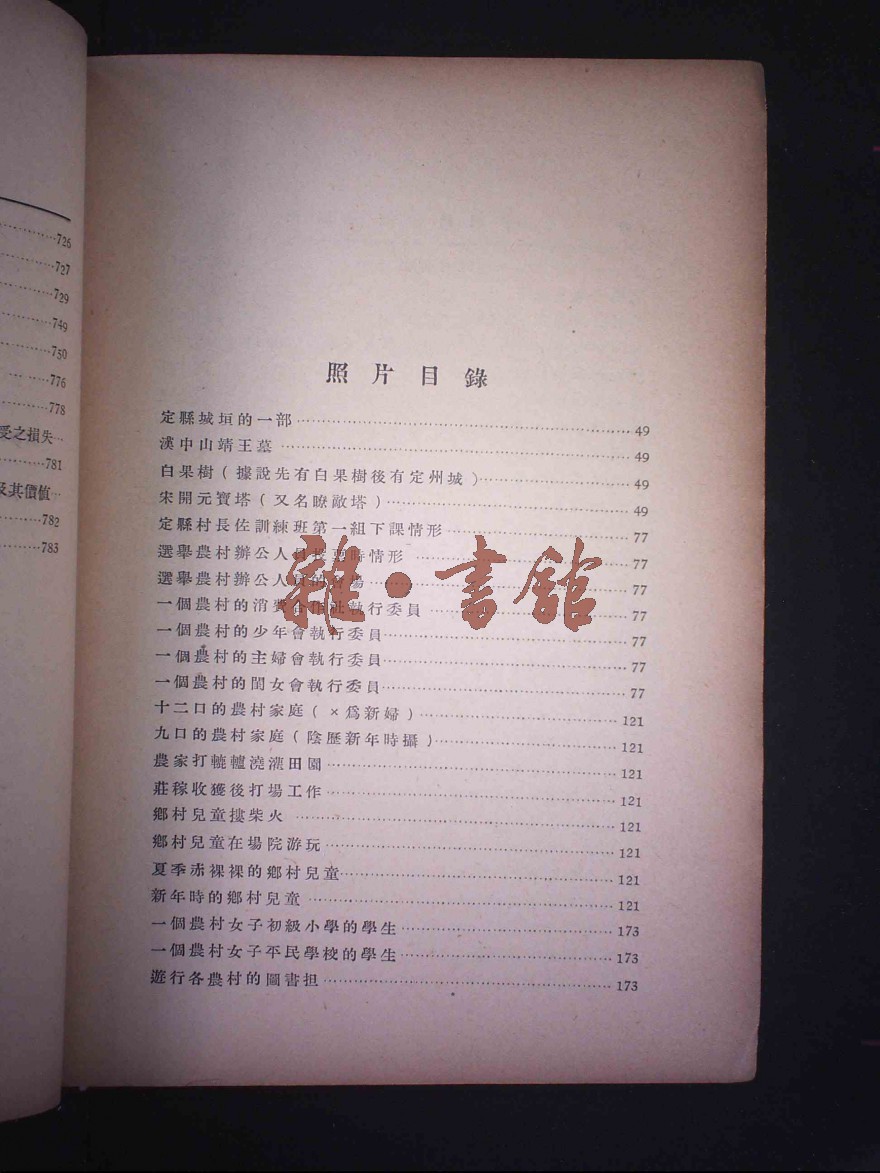 726
727
729
749
750
776
778
受之損失
781
及其價值
782
783
照片目錄
定縣城垣的一部 49
漢中山靖王墓 49
白果樹(據說先有白果樹後有定州城) 49
宋開元寶塔(又名瞭敵塔) 49
定縣村長佐訓練班第一組下課情形 77
選舉農村辦公人員投票時情形 77
選舉農村辦公人員的會場 77
一個農村的消費合作社執行委員 77
一個農村的少年會執行委員 77
一個農村的主婦會執行委員 77
一個農村的閨女會執行委員 77
十二口的農村家庭(×為新婦) 121
九口的農村家庭(陰歷新年時攝) 121
農家打轆轤澆灌田園 121
莊稼收獲後打場工作 121
鄉村兒童摟柴火 121
鄉村兒童在場院游玩 121
夏季赤裸裸的鄉村兒童 121
新年時的鄉村兒童 121
一個農村女子初級小學的學生 173
一個農村女子平民學校的學生 173
遊行各農村的圖書担 173
雜·書館